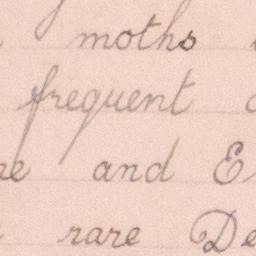 moths
frequent
and
rare De